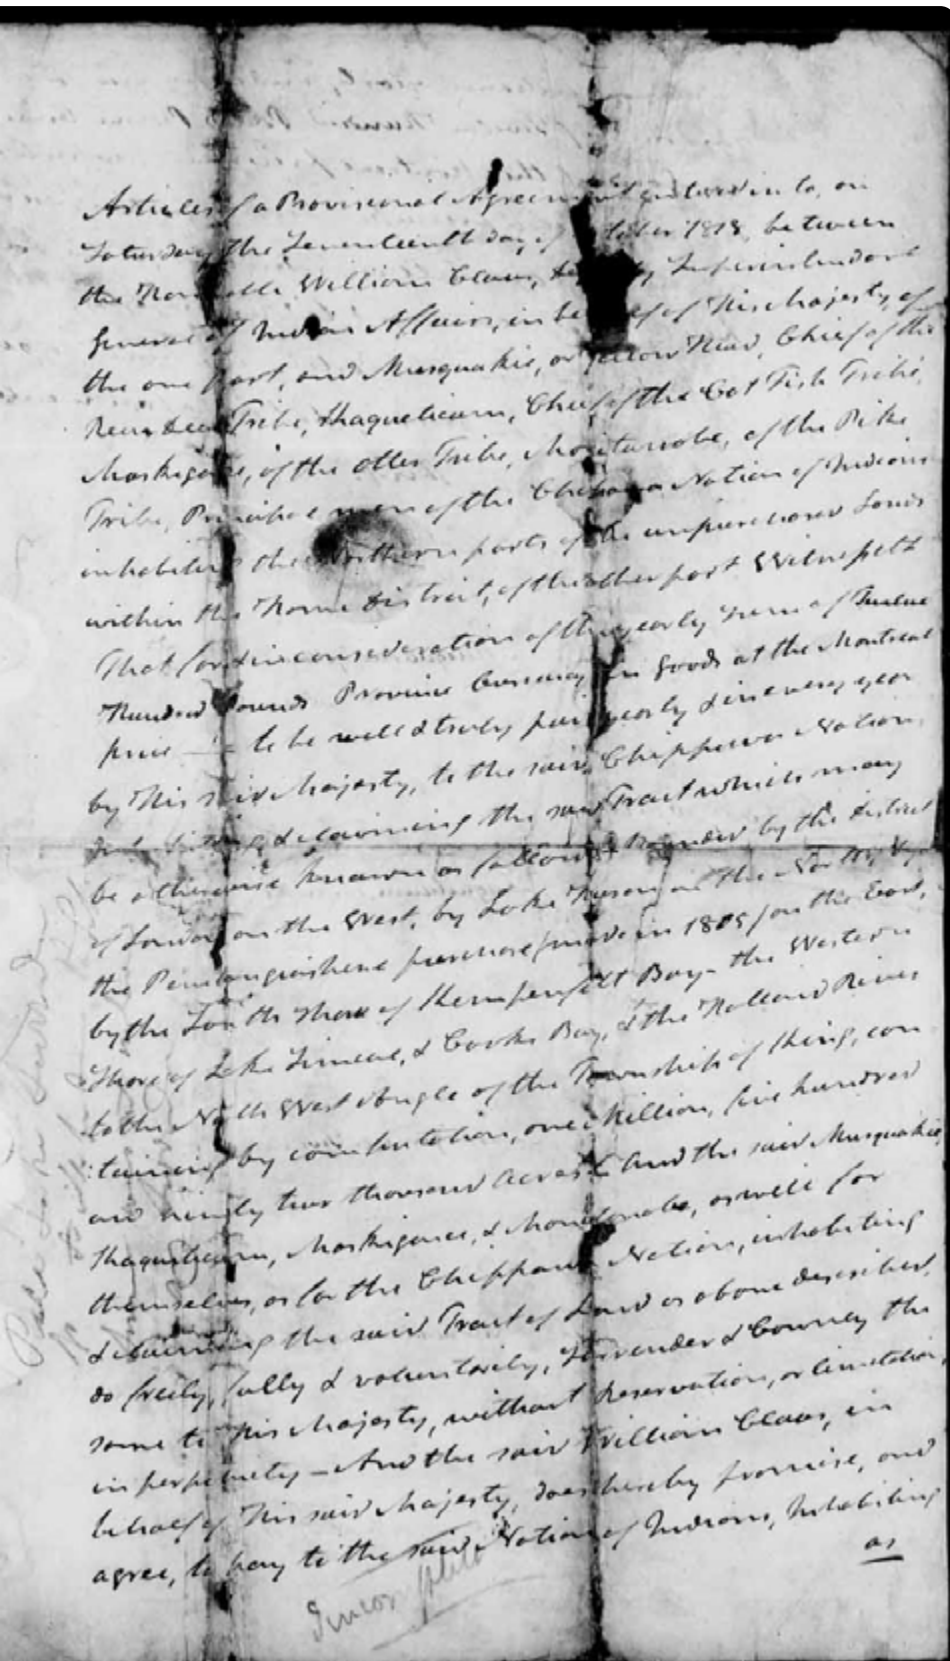 Articles of a Provisional Agreement entered into, on
Saturday the Seventeenth day of October 1818, between
the Honorable William Claus, Deputy Superintendent
General of Indian Affairs, in behalf of His Majesty, of
the one part, and Musquakie, or Yellow Head, Chief of the
Rein deer Tribe, Shaqueticum, Chief of the Cat Fish Tribe,
Maskigonce, of the Otter Tribe, Manitanobe, of the Pike
Tribe, Principal men of the Chippawa Nation of Indians
inhabiting the Northern parts of the unpurchased Lands
within the Home District, of the other part Witnesseth
That for & in consideration of the yearly sum of Twelve
Hundred Pounds Province Currency in Goods at the Montreal
price — to be well & truly paid yearly & in every year
by His said Majesty, to the said Chippawa Nation,
inhabiting & claiming the said Tract which may
be otherwise known as follows, Bounded by the district
of London on the West, by Lake Huron on the North, by
the Penetanguishene purchase (made in 1815) on the East,
by the South shore of Kempenfelt Bay — the Western
Shore of Lake Simcoe, & Cooks Bay, & the Holland River
to the North West Angle of the Township of King, con
taining by computation, one Million, five hundred
and ninety two thousand acres — And the said Musquakie,
Shaqueticum, Maskigonce, & Manitonobe, as well for
themselves, as for the Chippawa Nation, inhabiting
& claiming the said Tract of Land as above described,
do freely, fully & voluntarily, Surrender & Convey the
same to His Majesty, without Reservation, or limitation,
in perpetuity — And the said William Claus, in
behalf of His said Majesty, does hereby promise, and
agree, to pay to the said Nation of Indians, Inhabiting
as
Incomplete